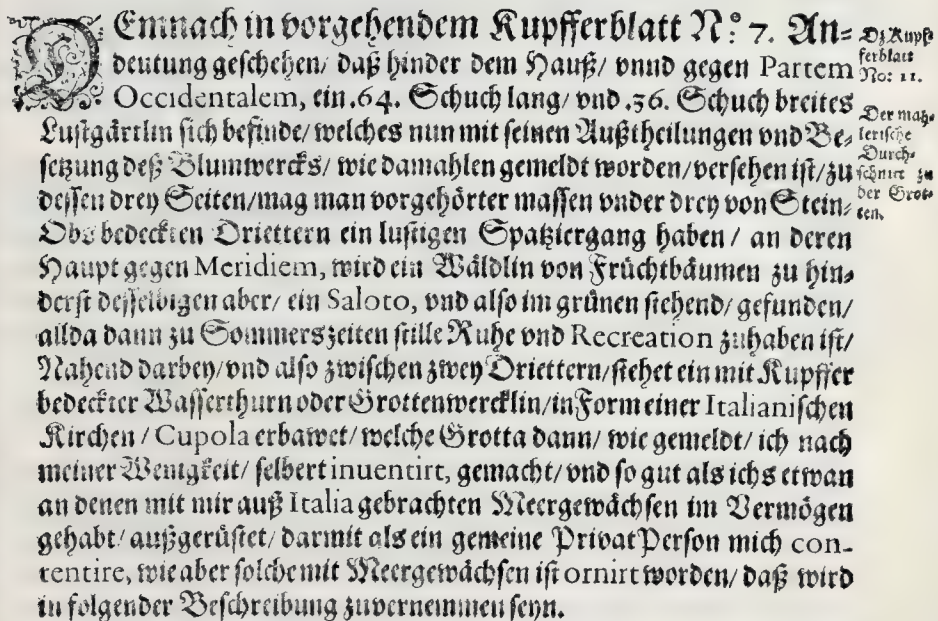 DEmnach in vorgehendem Kupfferblatt N.° 7. An-
deutung geschehen/ daß hinder dem Hauß/ vnnd gegen Partem
Occidentalem, ein .64. Schuch lang/ vnd .56. Schuch breites
Lustgärtlin sich befinde/ welches nun mit seinen Außtheilungen vnd Be-
setzung deß Blumwercks/ wie damahlen gemeldt worden/ versehen ist/ zu
dessen drey Seiten/ mag man vorgehörter massen vnder drey von Stein-
Obs bedeckten Oriettern ein lustigen Spatziergang haben / an deren
Haupt gegen Meridiem, wird ein Wäldlin von Früchtbäumen zu hin-
derst desselbigen aber/ ein Saloto, vnd also im grünen stehend/ gefunden/
allda dann zu Sommerszeiten stille Ruhe vnd Recreation zuhaben ist/
Nahend darbey/ vnd also zwischen zwey Oriettern/ stehet ein mit Kupffer
bedeckter Wasserthurn oder Grottenwercklin/ in Form einer Italianischen
Kirchen / Cupola erbawet/ welche Grotta dann/ wie gemeldt/ ich nach
meiner Wenigkeit/ selbert inuentirt, gemacht/ vnd so gut als ichs etwan
an denen mit mir auß Italia gebrachten Meergewächsen im Vermögen
gehabt/ außgerüstet/ darmit als ein gemeine Privat Person mich con-
tentire, wie aber solche mit Meergewächsen ist ornirt worden/ daß wird
in folgender Beschreibung zuvernemmen seyn.
Dz Kupf-
ferblatt
No: 11.
Der mah-
lerische
Durch-
schnitt zu
der Grot-
ten.